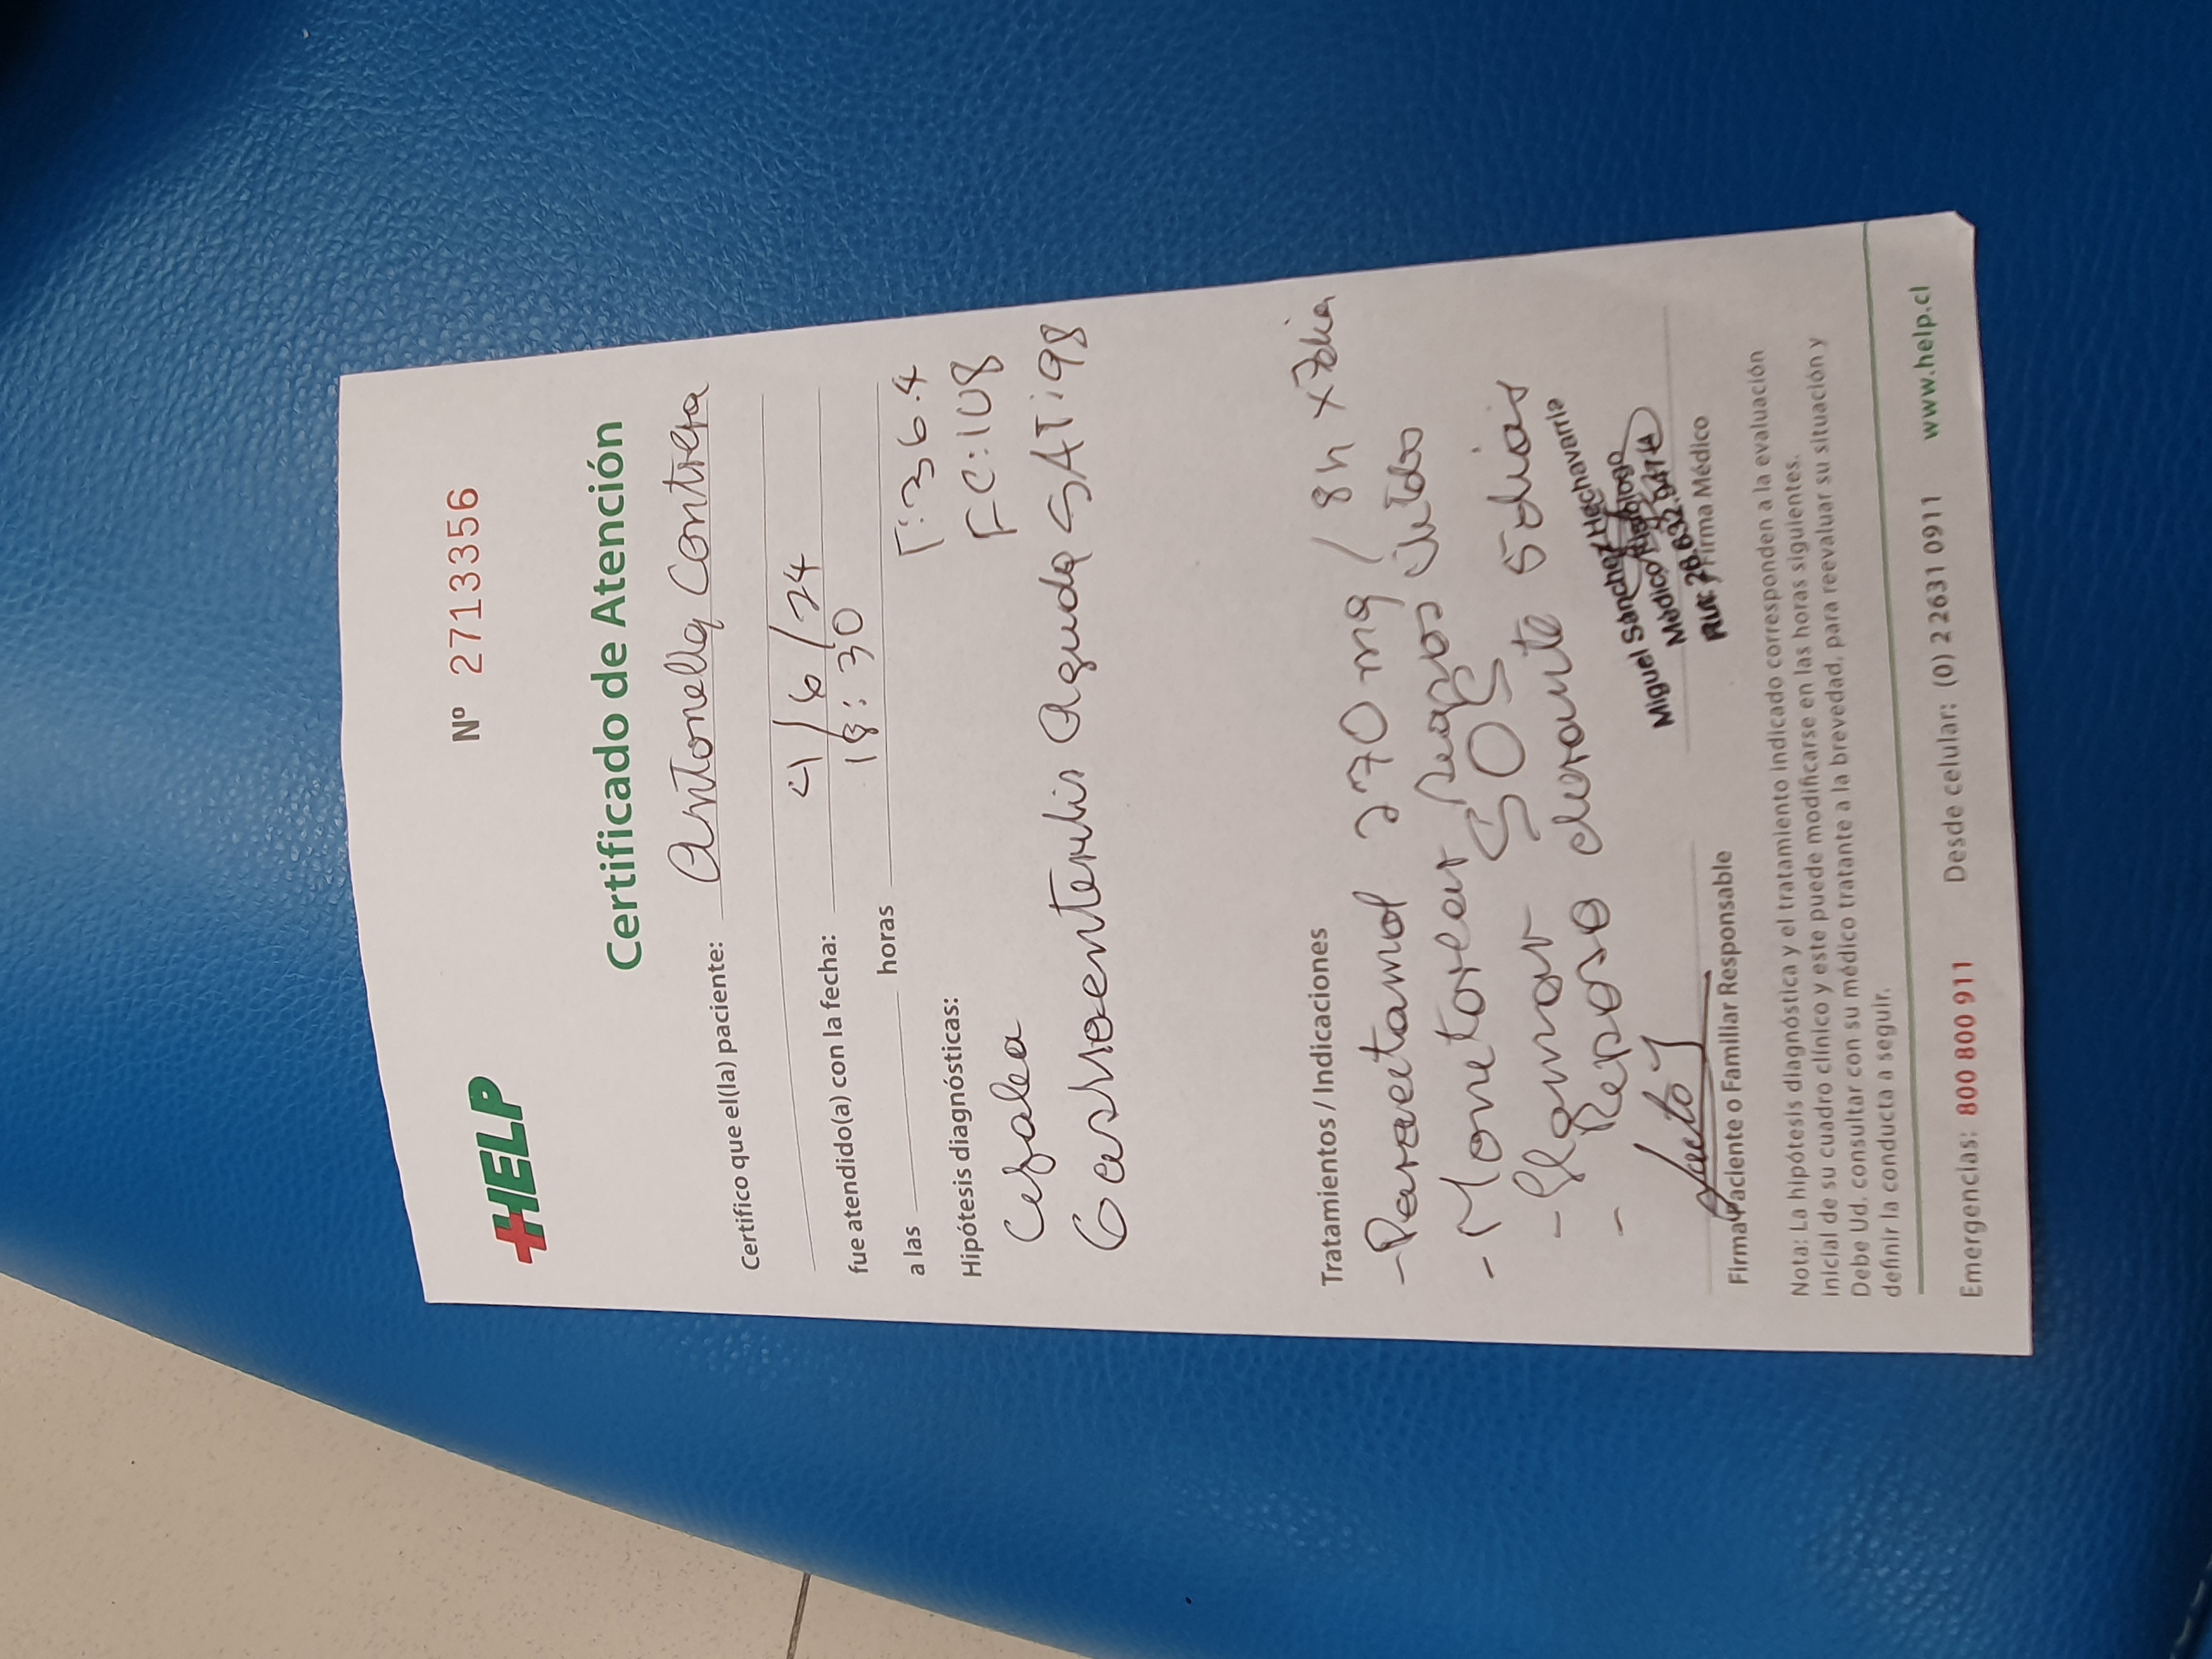 HELP
Nº 2713356
Certificado de Atención
Certifico que el(la) paciente: Antonella Contrera
fue atendido(a) con la fecha: 4/6/24
a las 18:30 horas
T: 36.4
Hipótesis diagnósticas: FC: 108
Cefalea
Gastroenteritis Aguda SAT: 98
Tratamientos / Indicaciones
- Paracetamol 270 mg / 8h x 7dia
- Monetorear
- Llamar SOS
- Reposo durante 5 dias
Miguel Sánchez Hechavarría
Médico
Rut:
Firma Paciente o Familiar Responsable Firma Médico
Nota: La hipótesis diagnóstica y el tratamiento indicado corresponden a la evaluación
inicial de su cuadro clínico y este puede modificarse en las horas siguientes.
Debe Ud. consultar con su médico tratante a la brevedad, para reevaluar su situación y
definir la conducta a seguir.
Emergencias: 800 800 911 Desde celular: (0) 2 2631 0911 www.help.cl